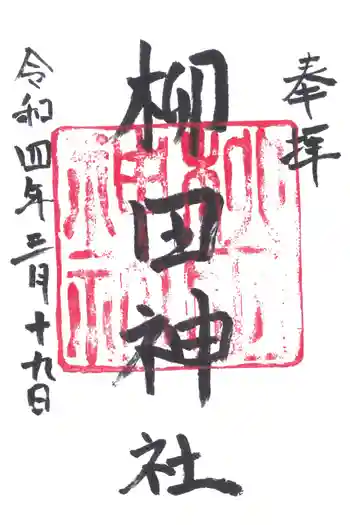 奉拝
柳田神社
令和四年三月十九日